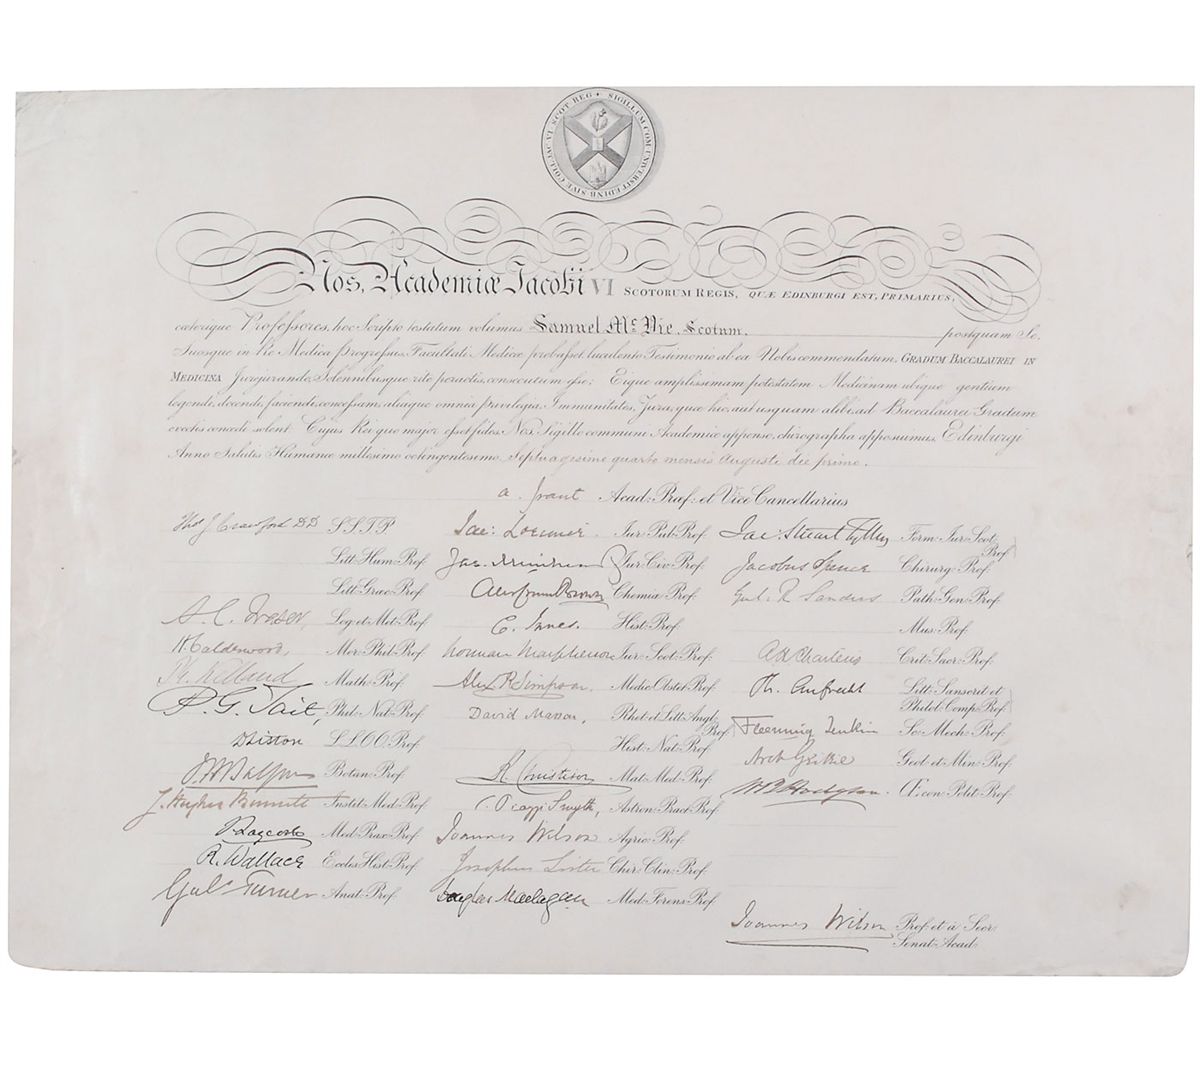 SIGILLUM COM: UNIVERSIT: EDINR SIVE COLL: JAC: VI: SCOT: REG
Nos, Academiæ Jacobi VI SCOTORUM REGIS, QUÆ EDINBURGI EST, PRIMARIUS,
cæterique Professores, hoc Scripto testatum volumus Samuel McVie, Scotum, postquam Se,
Suosque in Re Medica progressus, Facultati Medicæ probasset, luculento Testimonio ab ea Nobis commendatum, GRADUM BACCALAUREI IN
MEDICINA Jurejurando, Solennibusque rite peractis, consecutum esse; Eique amplissimam potestatem Medicinam ubique gentium
legendi, docendi, faciendi, concessam, aliaque omnia privilegia, Immunitates, Jura, quæ hic, aut usquam alibi, ad Baccalaurei Gradum
evectis concedi solent. Cujus Rei quo major esset fides, Nos, Sigillo communi Academiæ appenso, chirographa apposuimus. Edinburgi
Anno Salutis Humanæ millesimo octingentesimo Septuagesimo quarto mensis Augusti die primo.
A. Grant Acad: Præf: et Vice Cancellarius
Thos J. Crawford DD S.S.T.P. Jac: Lorimer Jur: Pub: Prof: Jac: Stuart Tytler Form: Jur: Scot: Prof:
Litt: Hum: Prof: Jas. Muirhead Jur: Civ: Prof: Jacobus Spence Chirurg: Prof:
Litt: Græc: Prof: Alex Crum Brown Chemiæ Prof: Gul. R. Sanders Path: Gen: Prof:
A. C. Fraser, Log: et Met: Prof: C. Innes. Hist: Prof: Mus: Prof:
H. Calderwood, Mor: Phil: Prof: Norman Macpherson Jur: Scot: Prof: A H Charteris Crit: Sacr: Prof:
Ph. Kelland Math: Prof: Alex R Simpson. Medic: Obstet: Prof: Th. Aufrecht Litt: Sanscrit: et Philol: Comp: Prof:
P. G. Tait, Phil: Nat: Prof: David Masson, Rhet: et Litt: Angl: Prof: Fleeming Jenkin Sc: Mech: Prof:
D Liston L.L.O.O. Prof: Hist: Nat: Prof: Arch Geikie Geol: et Min: Prof:
J. H. Balfour Botan: Prof: R. Christison Mat: Med: Prof: W B Hodgson. Œcon: Polit: Prof:
J. Hughes Bennett Instit: Med: Prof: C. Piazzi Smyth, Astron: Pract: Prof:
T Laycock Med: Prax: Prof: Joannes Wilson Agric: Prof:
R. Wallace Eccles: Hist: Prof: Josephus Lister Chir: Clin: Prof:
Gul Turner Anat: Prof: Douglas Maclagan Med: Forens: Prof:
Joannes Wilson Prof: et a Secr:
Senat: Acad: